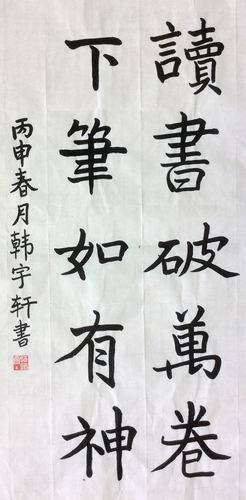 讀書破萬卷
下筆如有神
丙申春月韩宇轩書